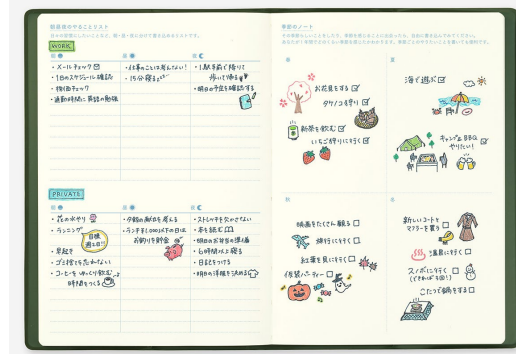 朝昼夜のやることリスト
季節のノート
WORK
朝
昼
夜
・メールチェック
・1日のスケジュール確認
・株価チェック
・通勤時間に英語の勉強
・仕事のことは考えない!
・15分寝る
・1駅手前で降りて
歩いて帰る
・明日の予定を確認する
PRIVATE
朝
昼
夜
・花の水やり
・ランニング
目標
週2日!!
・早起き
・ゴミ捨てを忘れない
・コーヒーをゆっくり飲む
時間をつくる
・夕飯の献立を考える
・ランチ¥1,000以下の日は
お釣りを貯金
・ストレッチを欠かさない
・本を読む
・明日のお弁当の準備
・6時間以上寝る
・日記をつける
・明日の洋服を決める
春
お花見をする
タケノコ狩り
新茶を飲む
いちご狩りに行く
夏
海で遊ぶ
キャンプ&BBQ
やりたい!
秋
映画をたくさん観る
旅行に行く
紅葉を見に行く
仮装パーティー
冬
新しいコートと
マフラーを買う
温泉に行く
スノボに行く
(できれば3回!)
こたつで鍋をする